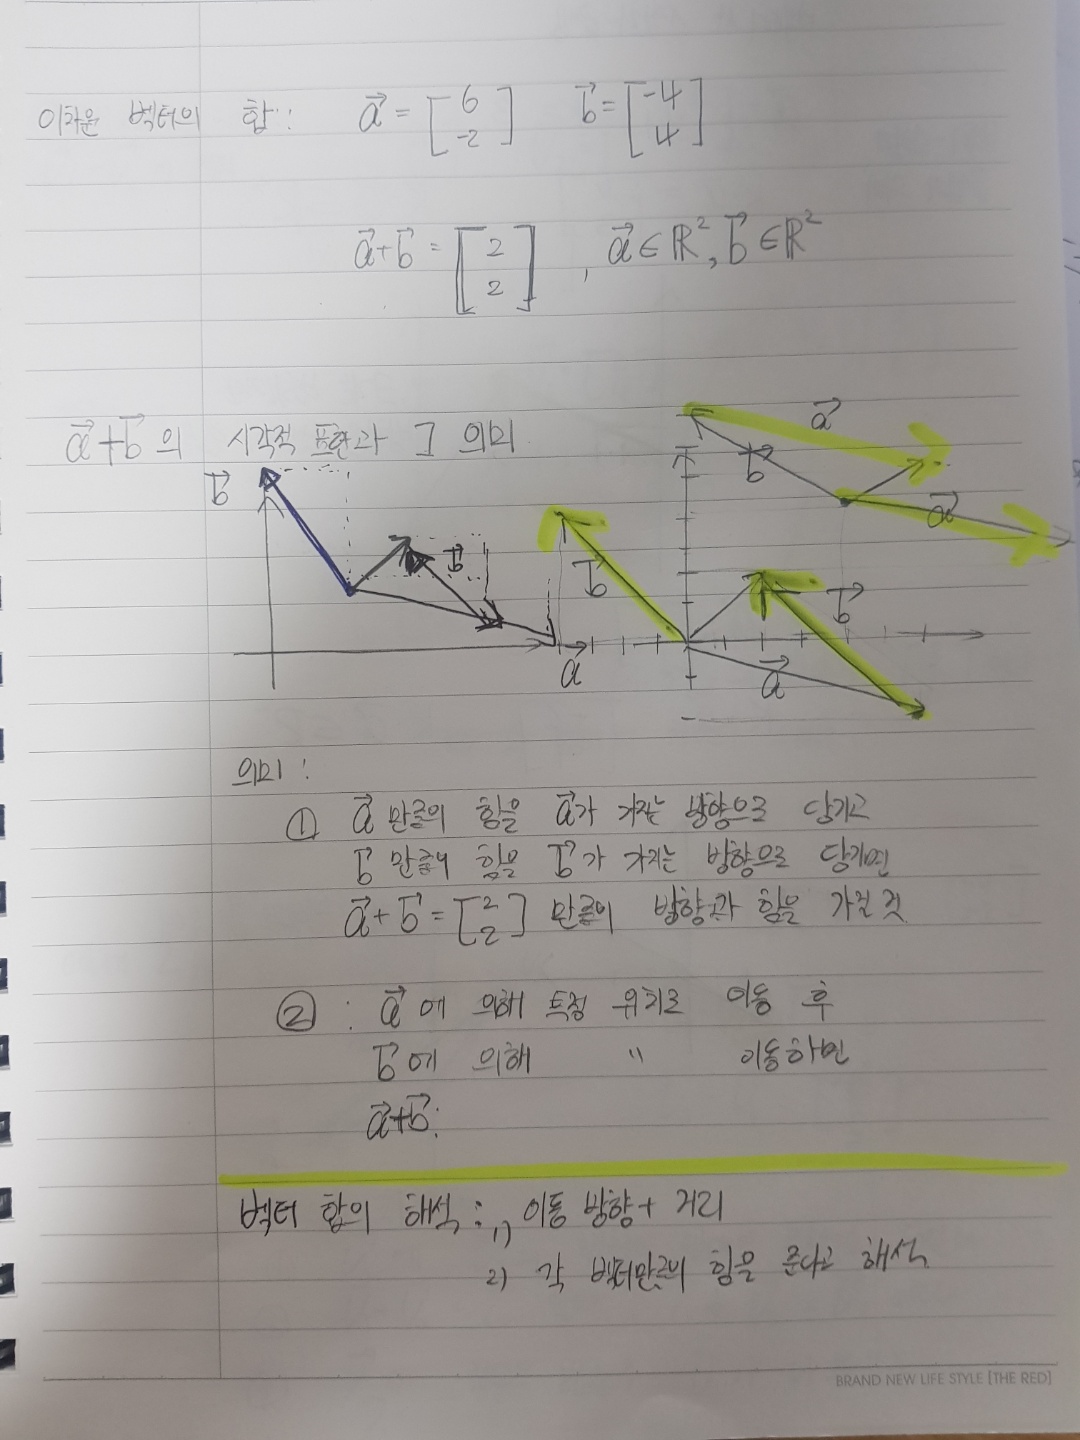 이차원 벡터의 합: a⃗ = [6 -2] b⃗ = [-4 4]
a⃗+b⃗ = [2 2] , a⃗∈ℝ², b⃗∈ℝ²
a⃗+b⃗ 의 시각적 표현과 그 의미
a⃗
b⃗
b⃗
a⃗
b⃗
b⃗
b⃗
a⃗
a⃗
의미 :
① a⃗ 만큼의 힘을 a⃗가 가지는 방향으로 당기고
b⃗ 만큼의 힘을 b⃗가 가지는 방향으로 당기면
a⃗+b⃗ = [2 2] 만큼의 방향과 힘을 가질 것
② : a⃗에 의해 특정 위치로 이동 후
b⃗에 의해 〃 이동하면
a⃗+b⃗:
벡터 합의 해석 : 1) 이동 방향 + 거리
2) 각 벡터만큼의 힘을 준다고 해석
BRAND NEW LIFE STYLE [THE RED]